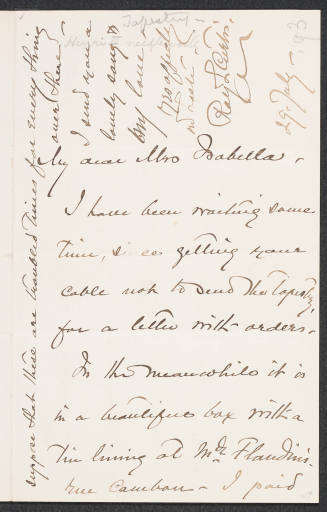 Tapestry
29 July - 93
My dear Mrs Isabella -
I have been waiting some
time, since getting your
cable not to send the tapestry,
for a letter with orders.
In the meanwhile it is
in a beautiful box with a
tin lining at Mr Flandin's
rue Cambon - I paid
suppose that these are troubled times for everything
over there -
I send you a
lovely
my love